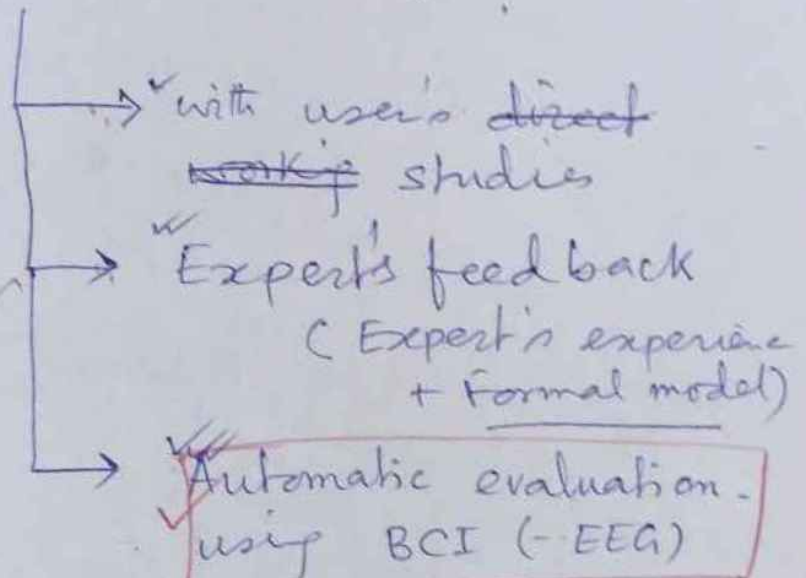 with user's direct
working studies
Expert's feedback
( Expert's experience
+ Formal model)
Automatic evaluation.
using BCI (- EEG)